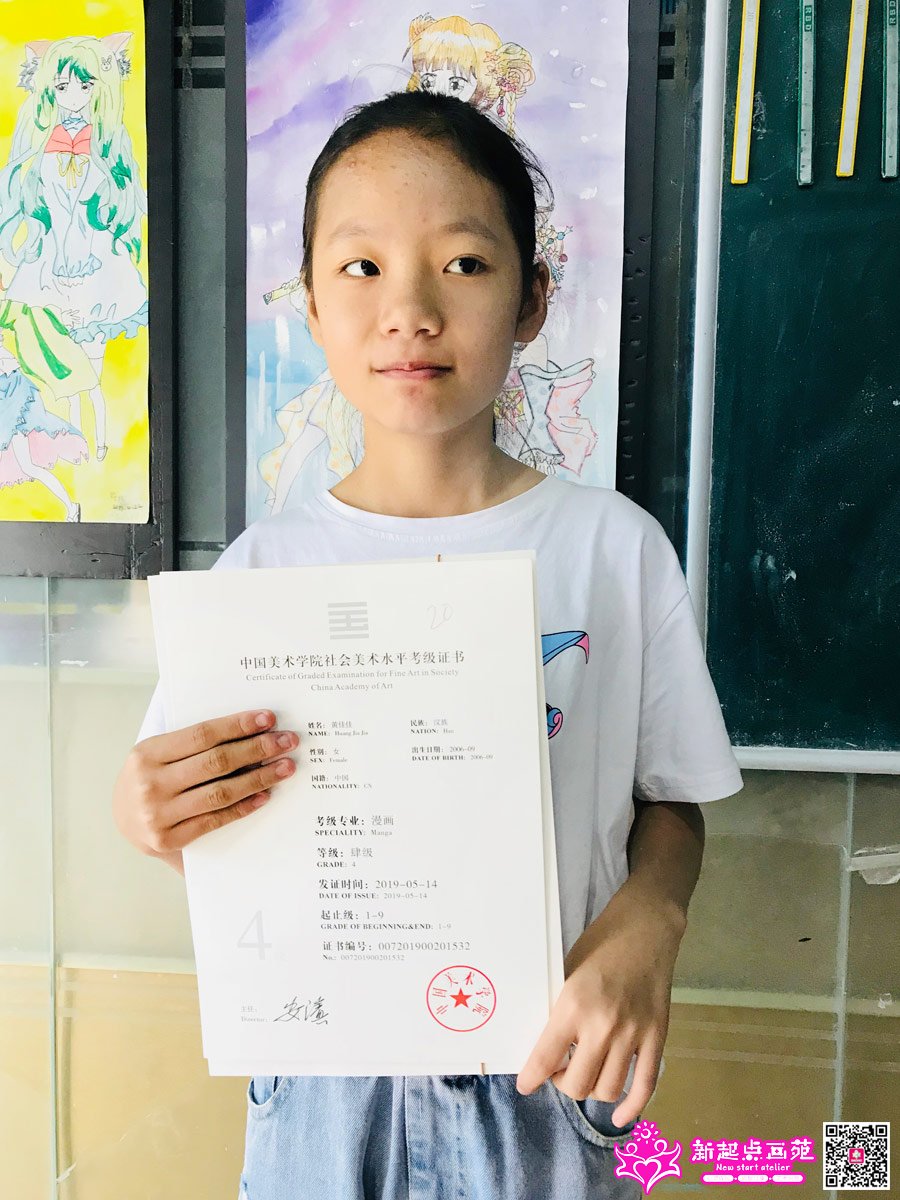 20
中国美术学院社会美术水平考级证书
Certificate of Graded Examination for Fine Art in Society
China Academy of Art
姓名：黄佳佳 民族：汉族
NAME: Huang Jia Jia NATION: Han
性别：女 出生日期：2006-09
SEX: Female DATE OF BIRTH: 2006-09
国籍：中国
NATIONALITY: CN
考级专业：漫画
SPECIALITY: Manga
等级：肆级
GRADE: 4
发证时间：2019-05-14
DATE OF ISSUE: 2019-05-14
起止级：1-9
GRADE OF BEGINNING&END: 1-9
证书编号：007201900201532
No.: 007201900201532
4级
主任：
Director:
中国美术学院
新起点画苑
New start atelier